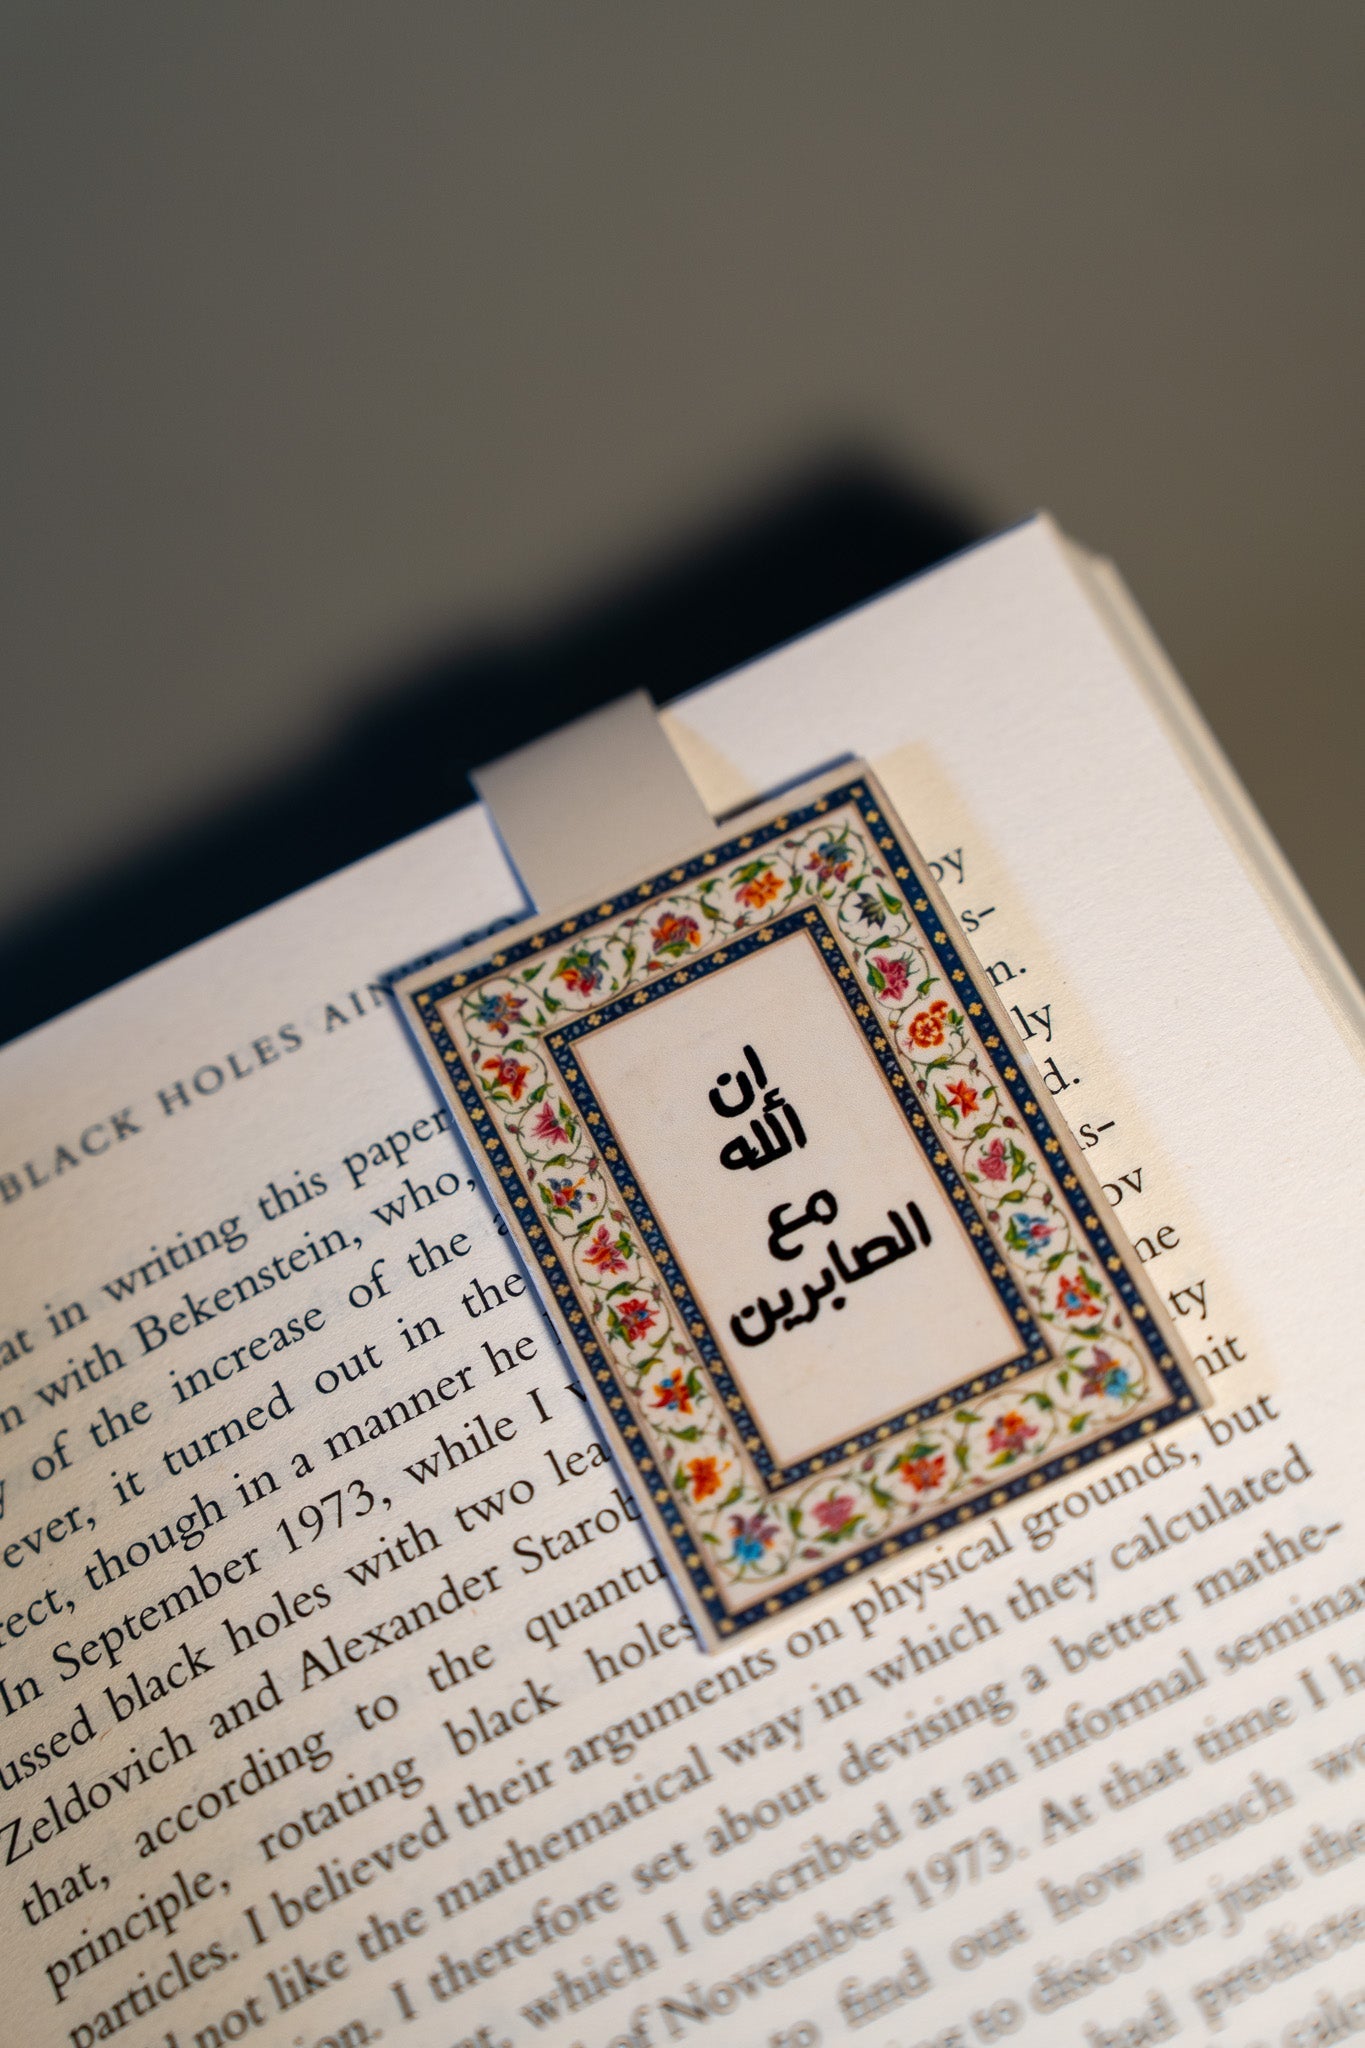 BLACK HOLES AIN
by
at in writing this paper
n with Bekenstein, who,
n.
y of the increase of the
ly
ever, it turned out in the
d.
rect, though in a manner he
In September 1973, while I
ov
ussed black holes with two lea
ne
Zeldovich and Alexander Starob
ty
that, according to the quantu
nit
principle, rotating black holes
particles. I believed their arguments on physical grounds, but
not like the mathematical way in which they calculated
ion. I therefore set about devising a better mathe-
nt, which I described at an informal seminar
of November 1973. At that time I h
to find out how much wo
to discover just the
had predicte
calc
ان
ألله
مع
الصابرين